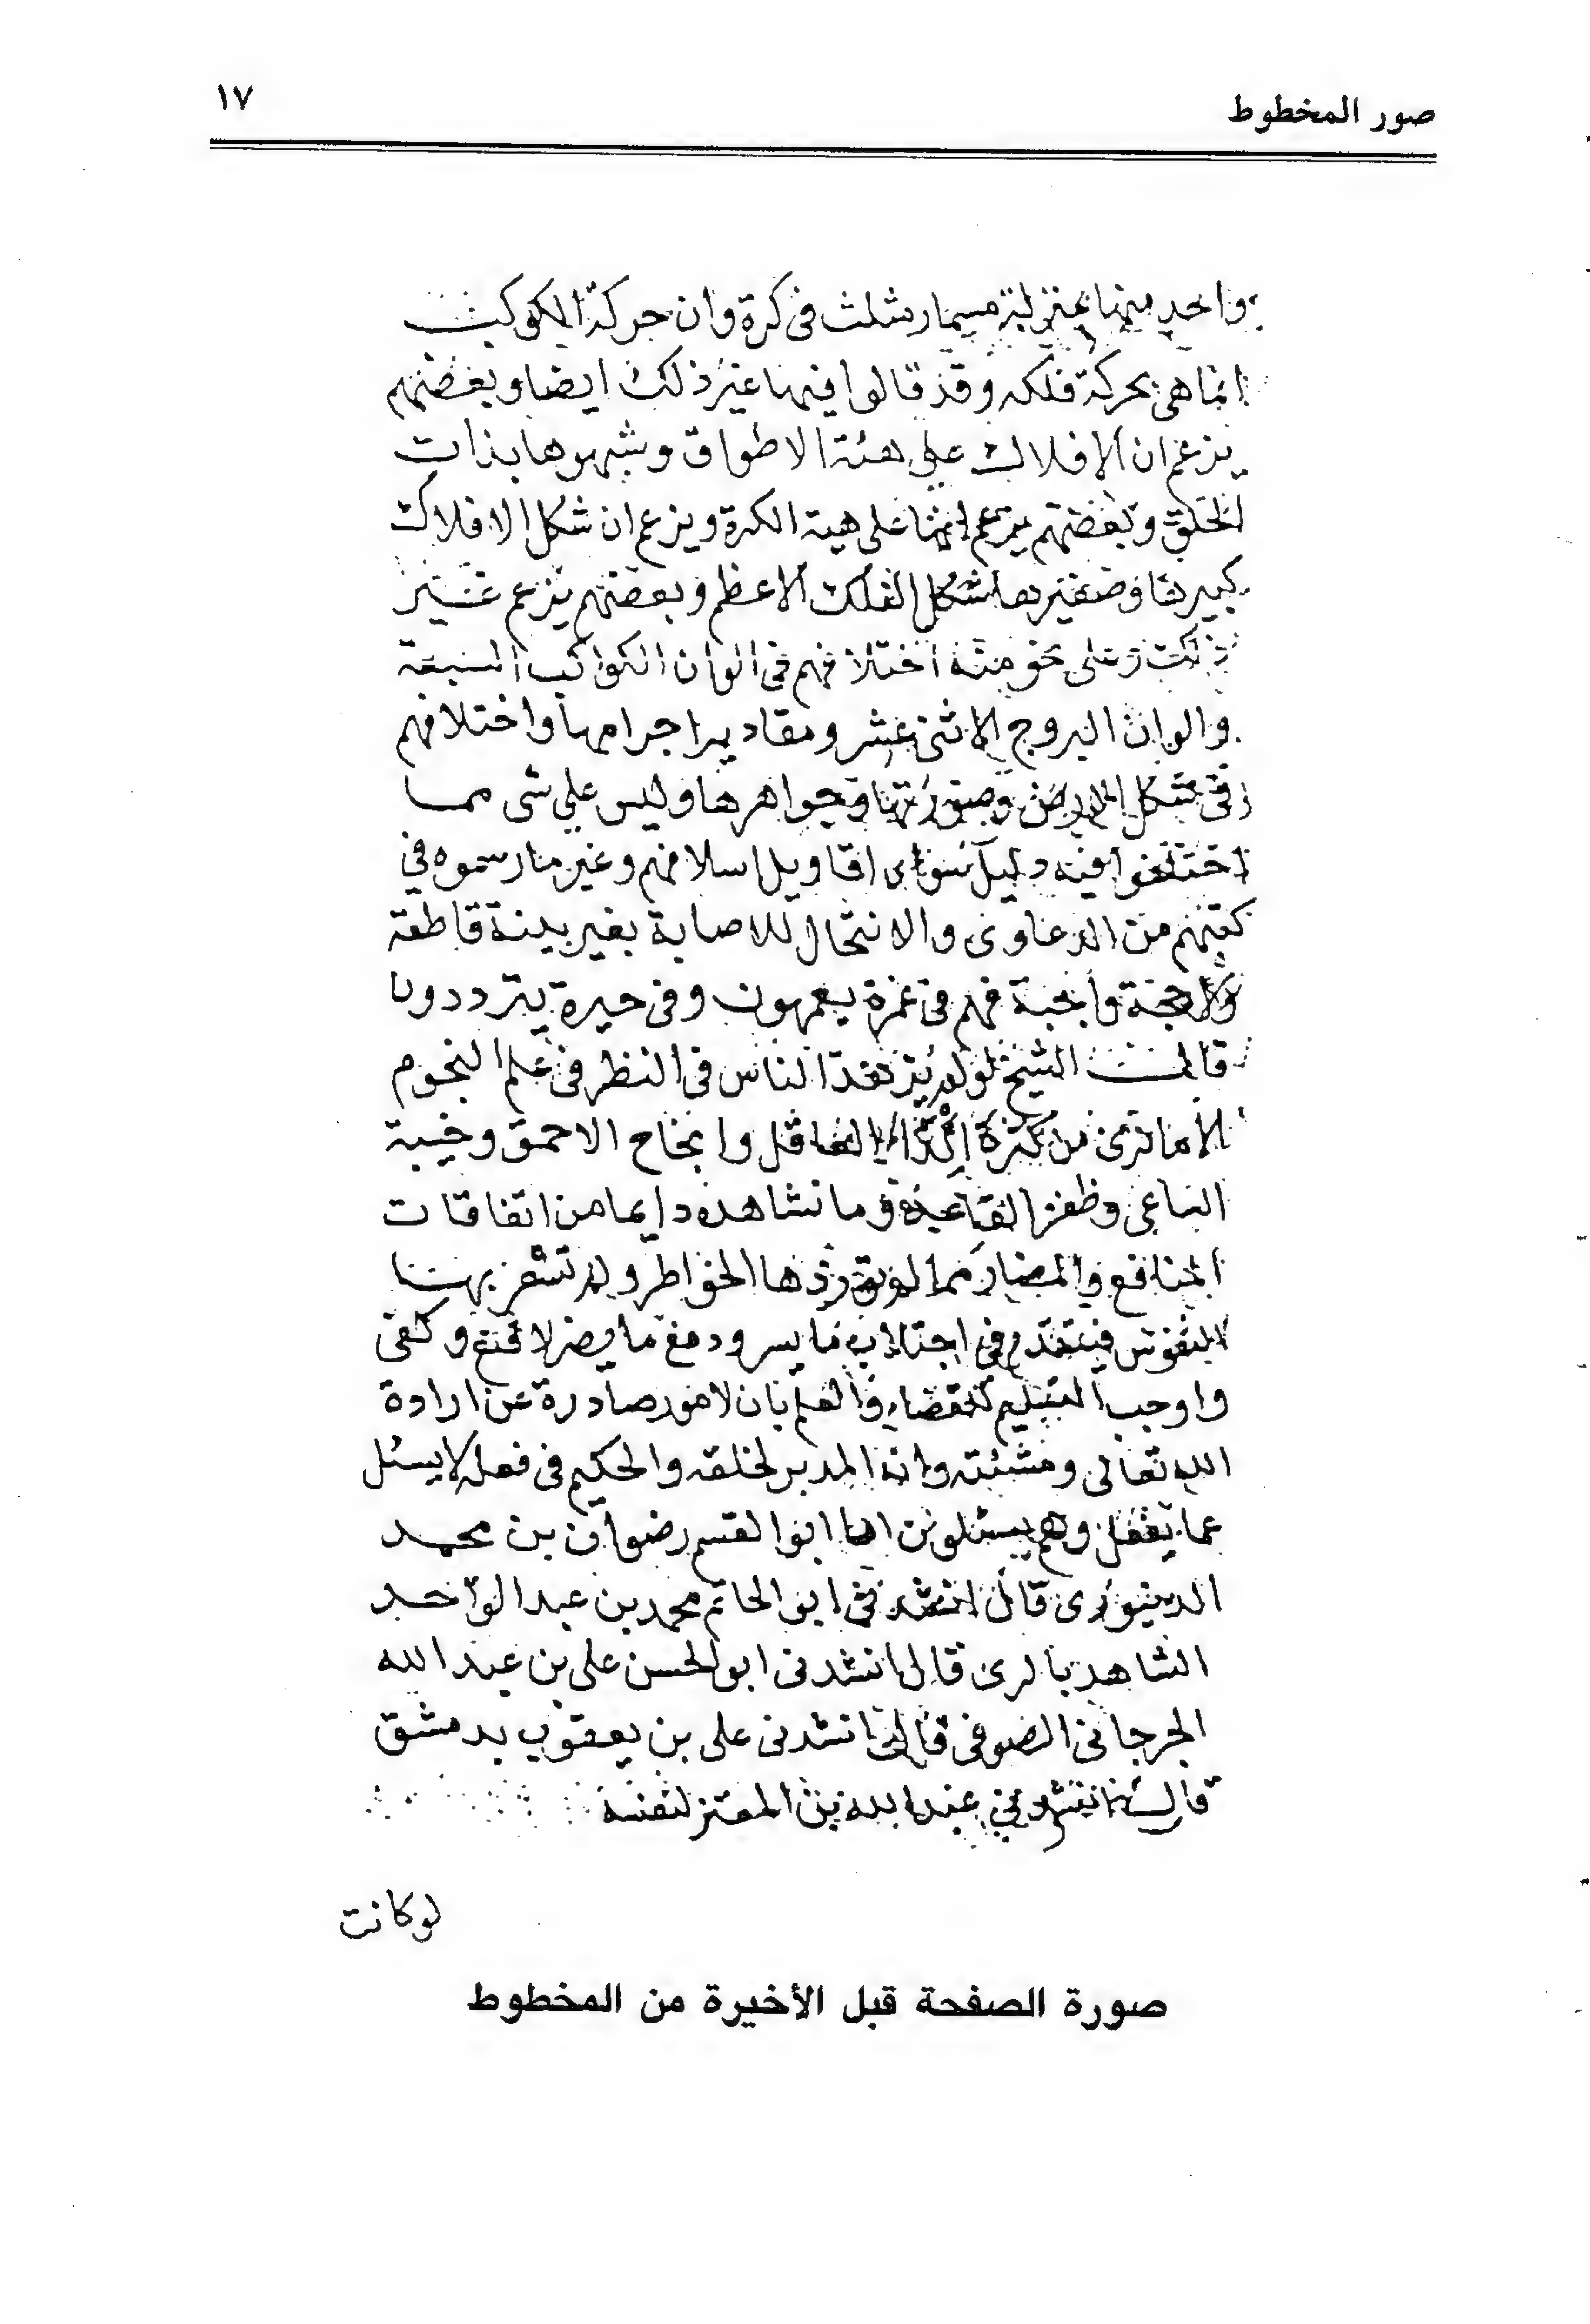 صور المخطوط
١٧
واحد منها بمنزلة مسمار مثلث في كرة وان حركة الكوكب
انما هي بحركة فلكه وقد قالوا فيها غير ذلك ايضا وبعضهم
يزعم ان الافلاك على هئة الاطواق وشبهوها بذات
الحلق وبعضهم يزعم انها على هية الكرة ويزعم ان شكل الافلاك
كبيرها وصغيرها شكل الفلك الاعظم وبعضهم يزعم غير
ذلك وعلى نحو منه اختلافهم في الوان الكواكب السبعة
والوان البروج الاثنى عشر ومقادير اجرامها واختلافهم
في شكل الارض وصورتها وجواهرها وليس على شى مما
اختلفوا فيه دليل سوى اقاويل اسلافهم وغير ما رسموه في
كتبهم من الدعاوى والانتحال للاصابة بغير بينة قاطعة
ولا حجة واجبة فهم في غمرة يعمهون وفى حيرة يترددون
قال الشيخ لو لم يزهد الناس في النظر في علم النجوم
الا ما ترى من كثرة العاقل وانجاح الاحمق وخيبة
الساعي وظفر القاعد وما نشاهده دايما من اتفاقات
المنافع والمضار مما لم الخواطر ولم تشعر بها
النفوس فيتقدم في اجتلاب ما يسر ودفع ما يضر لاقنع وكفى
واوجب التسليم للقضاء والعلم بان لامور صادرة عن ارادة
الله تعالى ومشئته وانه المدبر لخلقه والحكيم في فعله لا يسئل
عما يفعل وهم يسئلون ابوا القسم رضوان بن محمد
الدينورى قال انشدني ابو الحاتم محمد بن عبد الواحد
الشاهد بالرى قال انشدنى ابو الحسن على بن عبد الله
الجرجانى الصوفى قال انشدنى على بن يعقوب بدمشق
قال انشدني عبد الله بن المعتز لنفسه
لو كانت
صورة الصفحة قبل الأخيرة من المخطوط